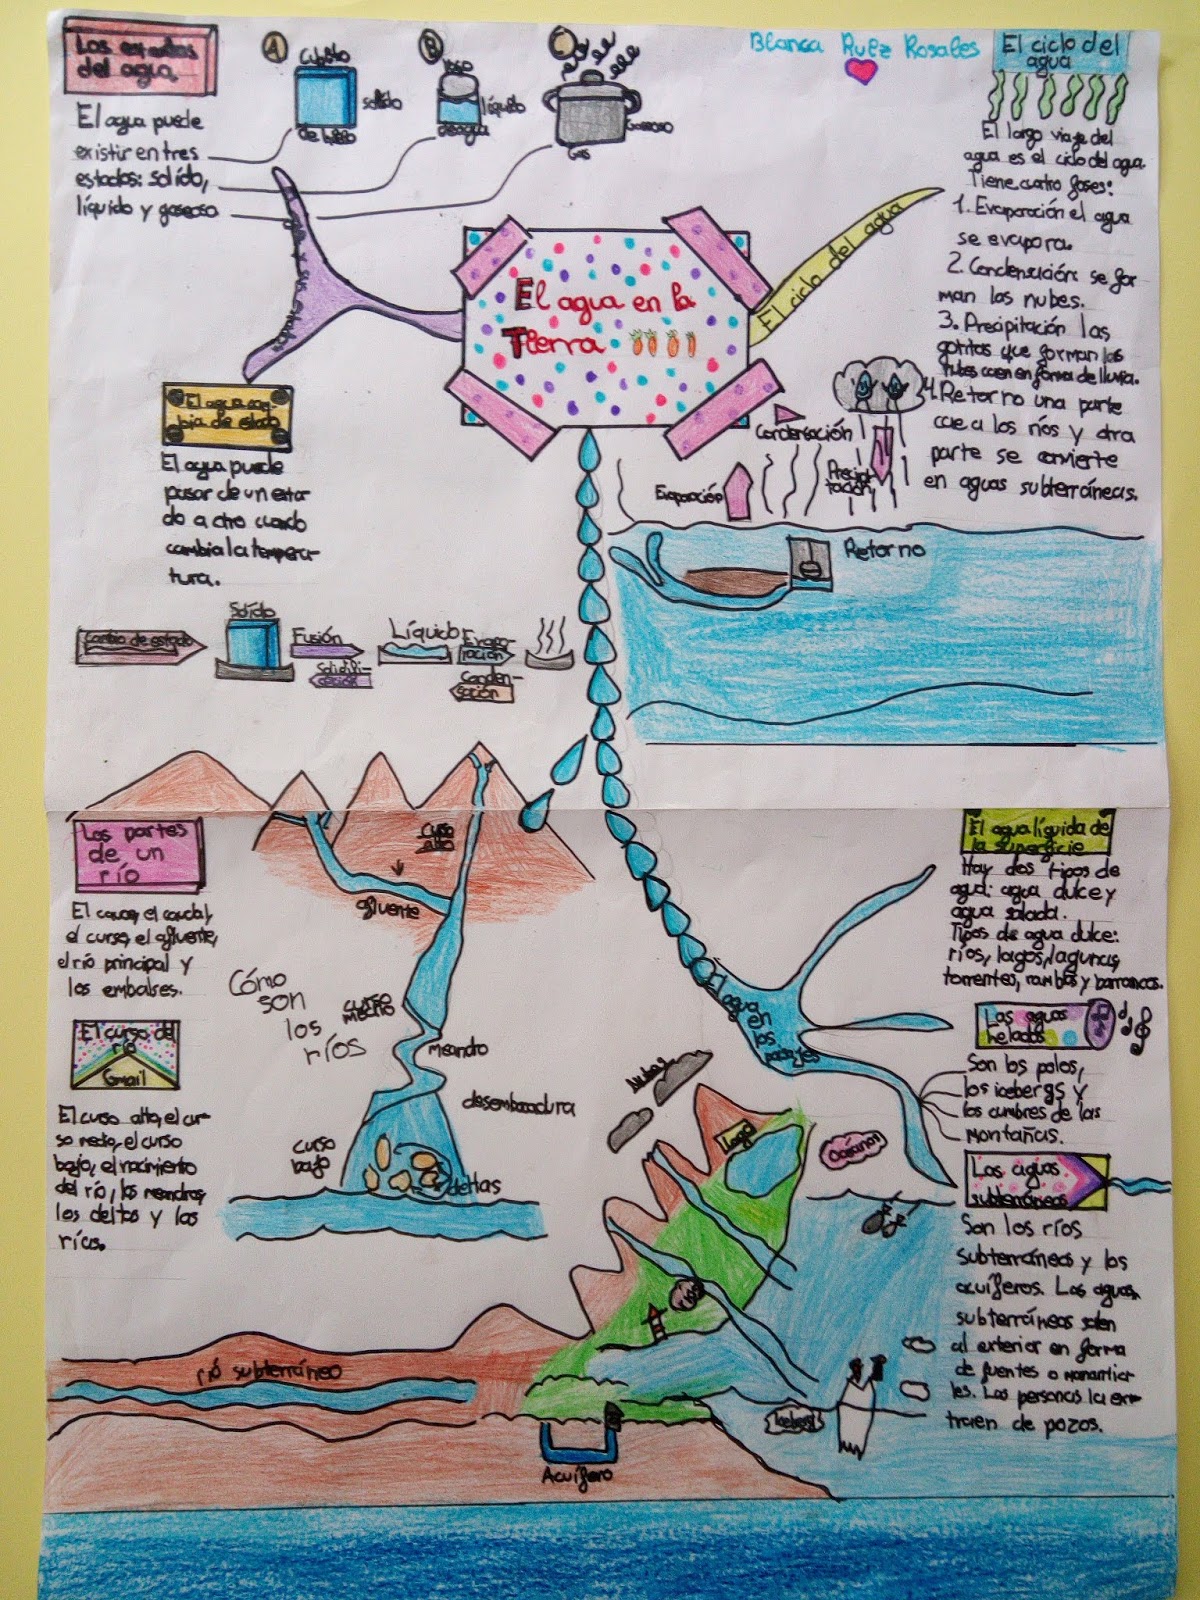 Los estados
del agua.
El agua puede
existir en tres
estados: sólido,
líquido y gaseoso
A
Cubito
de hielo
sólido
B
vaso
de agua
líquido
Gas
Gaseoso
Blanca Ruiz Rosales
El ciclo del
agua
El largo viaje del
agua es el ciclo del agua.
Tiene cuatro fases:
1. Evaporación el agua
se evapora.
2. Condensación: se for
man las nubes.
3. Precipitación las
gotitas que forman las
nubes caen en forma de lluvia.
4. Retorno una parte
cae a los ríos y otra
parte se convierte
en aguas subterráneas.
El agua en la
Tierra
El agua y sus estados
El ciclo del agua
El agua cam-
bia de estado
El agua puede
pasar de un esta-
do a otro cuando
cambia la tempera-
tura.
Condensación
Evaporación
Precipi-
tación
Retorno
Cambio de estado
Sólido
Fusión
Solidifi-
cación
Líquido
Evapo-
ración
Conden-
sación
Las partes
de un
río
El cauce, el caudal,
el curso, el afluente,
el río principal y
los embalses.
El curso del
río
Gmail
El curso alto, el cur-
so medio, el curso
bajo, el nacimiento
del río, los meandros,
los deltas y las
rías.
curso
alto
afluente
Cómo
son
los
ríos
curso
medio
meandro
desembocadura
curso
bajo
deltas
El agua
en
los
paisajes
El agua líquida de
la superficie
Hay dos tipos de
agua: agua dulce y
agua salada.
Tipos de agua dulce:
ríos, lagos, lagunas,
torrentes, ramblas y barrancos.
Las aguas
heladas
Son los polos,
los icebergs y
las cumbres de las
montañas.
Las aguas
subterráneas
Son los ríos
subterráneos y los
acuíferos. Las aguas
subterráneas salen
al exterior en forma
de fuentes o manantia-
les. Las personas la ex-
traen de pozos.
Nubes
Lago
Océano
ríos
río subterráneo
Iceberg
Acuífero